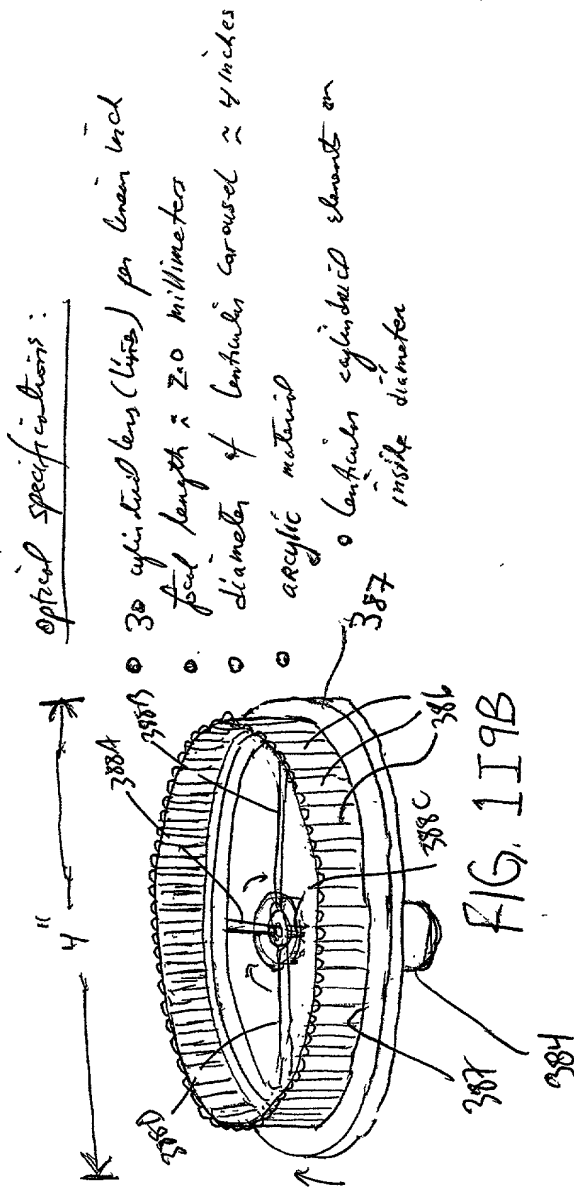 optical specifications:
○ 30 cylindrical lens (lines) per linear inch
○ focal length ≈ 2.0 millimeters
○ diameter of lenticular carousel ≈ 4 inches
○ arcylic material
○ lenticular cylindrical elements on
inside diameter
4"
388A
388B
388D
388C
387
386
384
FIG. 1I9B